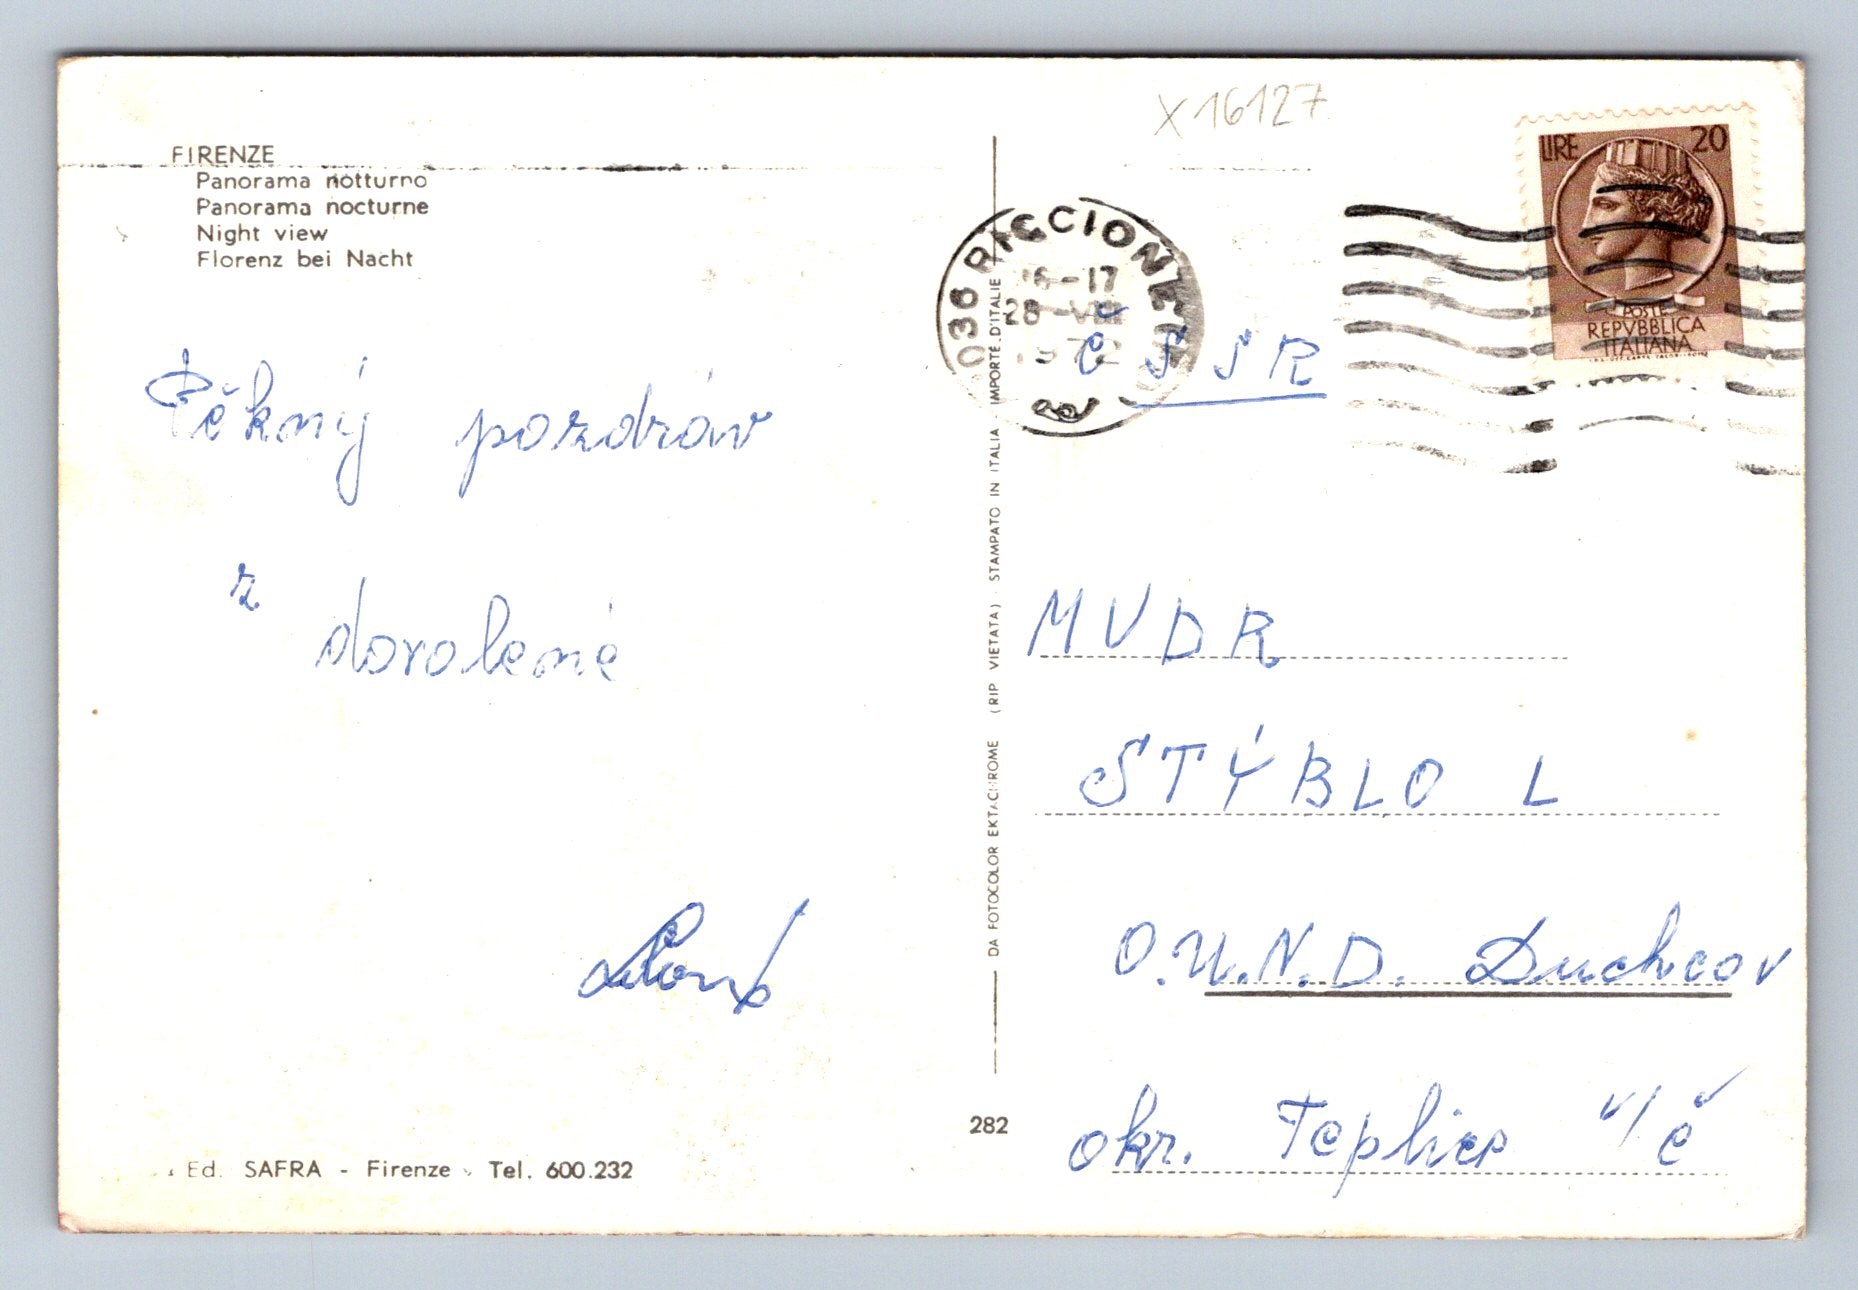 X 16127
FIRENZE
Panorama notturno
Panorama nocturne
Night view
Florenz bei Nacht
LIRE 20
POSTE
REPVBBLICA
ITALIANA
036 RICCIONE
16-17
28-VIII
1972
ČSSR
Pěkný pozdrav
z
dovolené
MVDR
STÝBLO L
O.U.N.D. Duchcov
okr. Teplice v/č
DA FOTOCOLOR EKTACHROME (RIP VIETATA) - STAMPATO IN ITALIA IMPORTE D'ITALIE
282
Ed. SAFRA - Firenze - Tel. 600.232